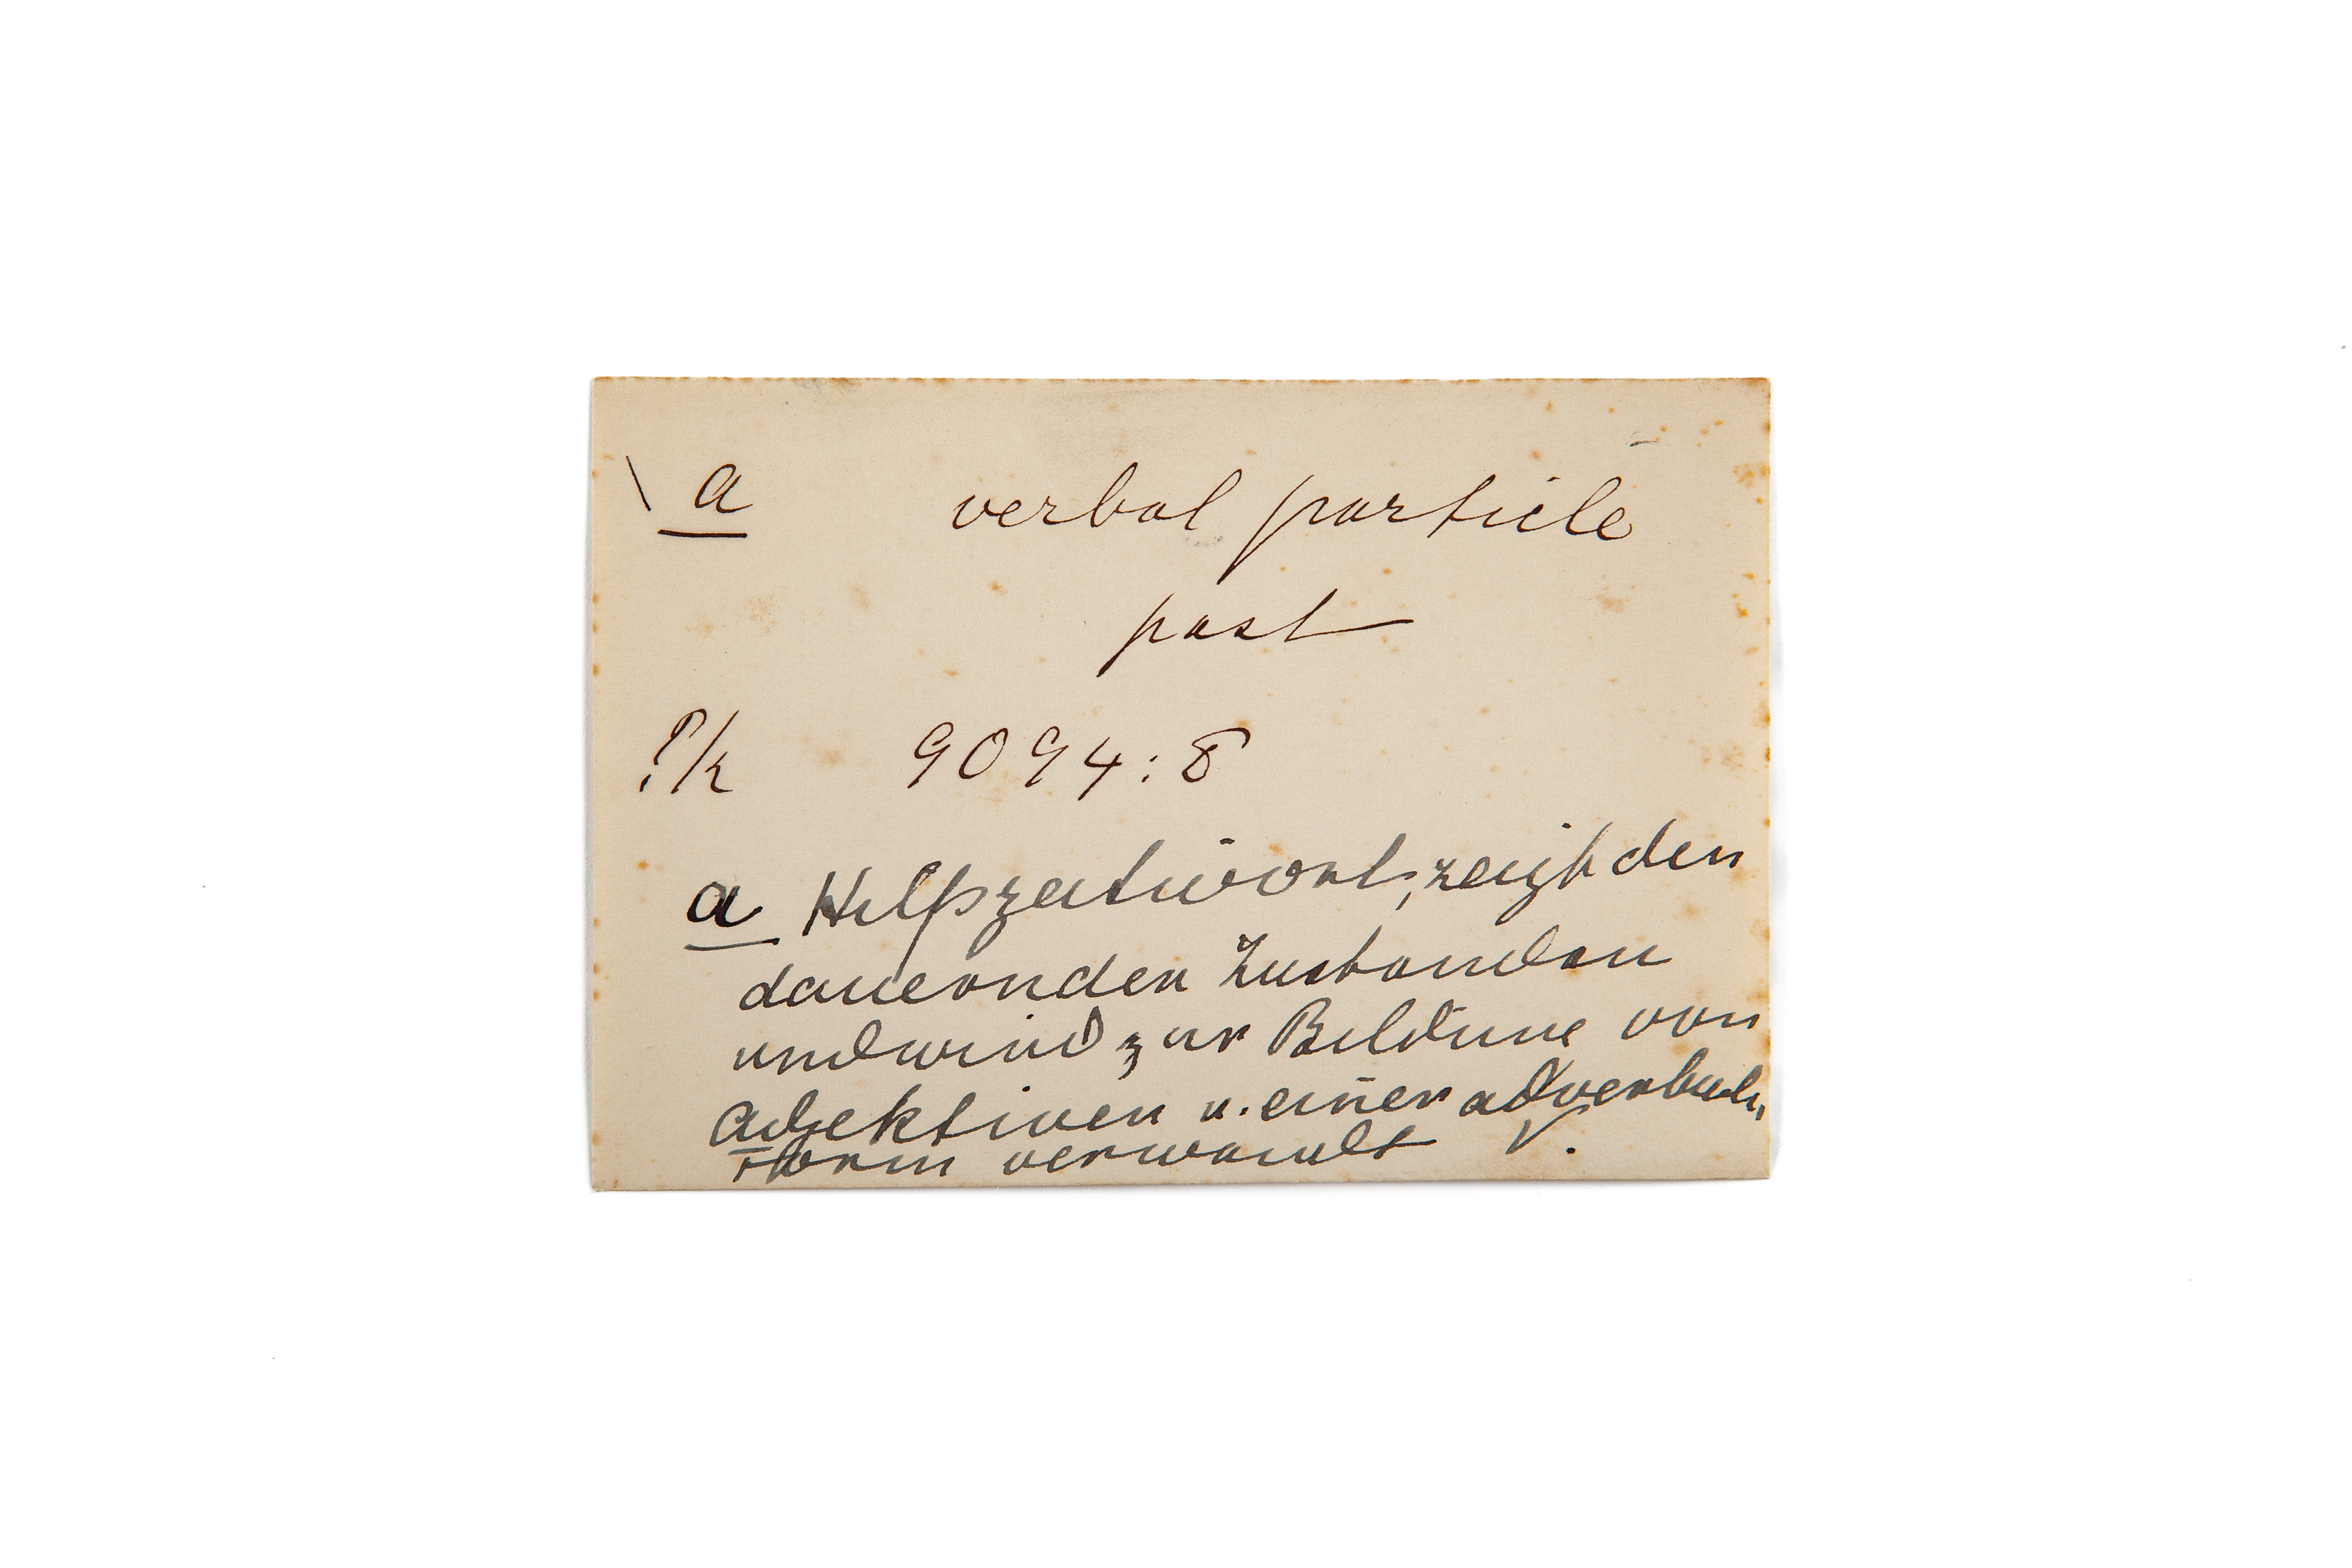 a verbal particle
past
!k 9094:8
a Hilfszeitwort, zeigt den
dauernden Zustand an
und wird zur Bildung von
adjektiven u. einer adverbial.
form verwandt V.